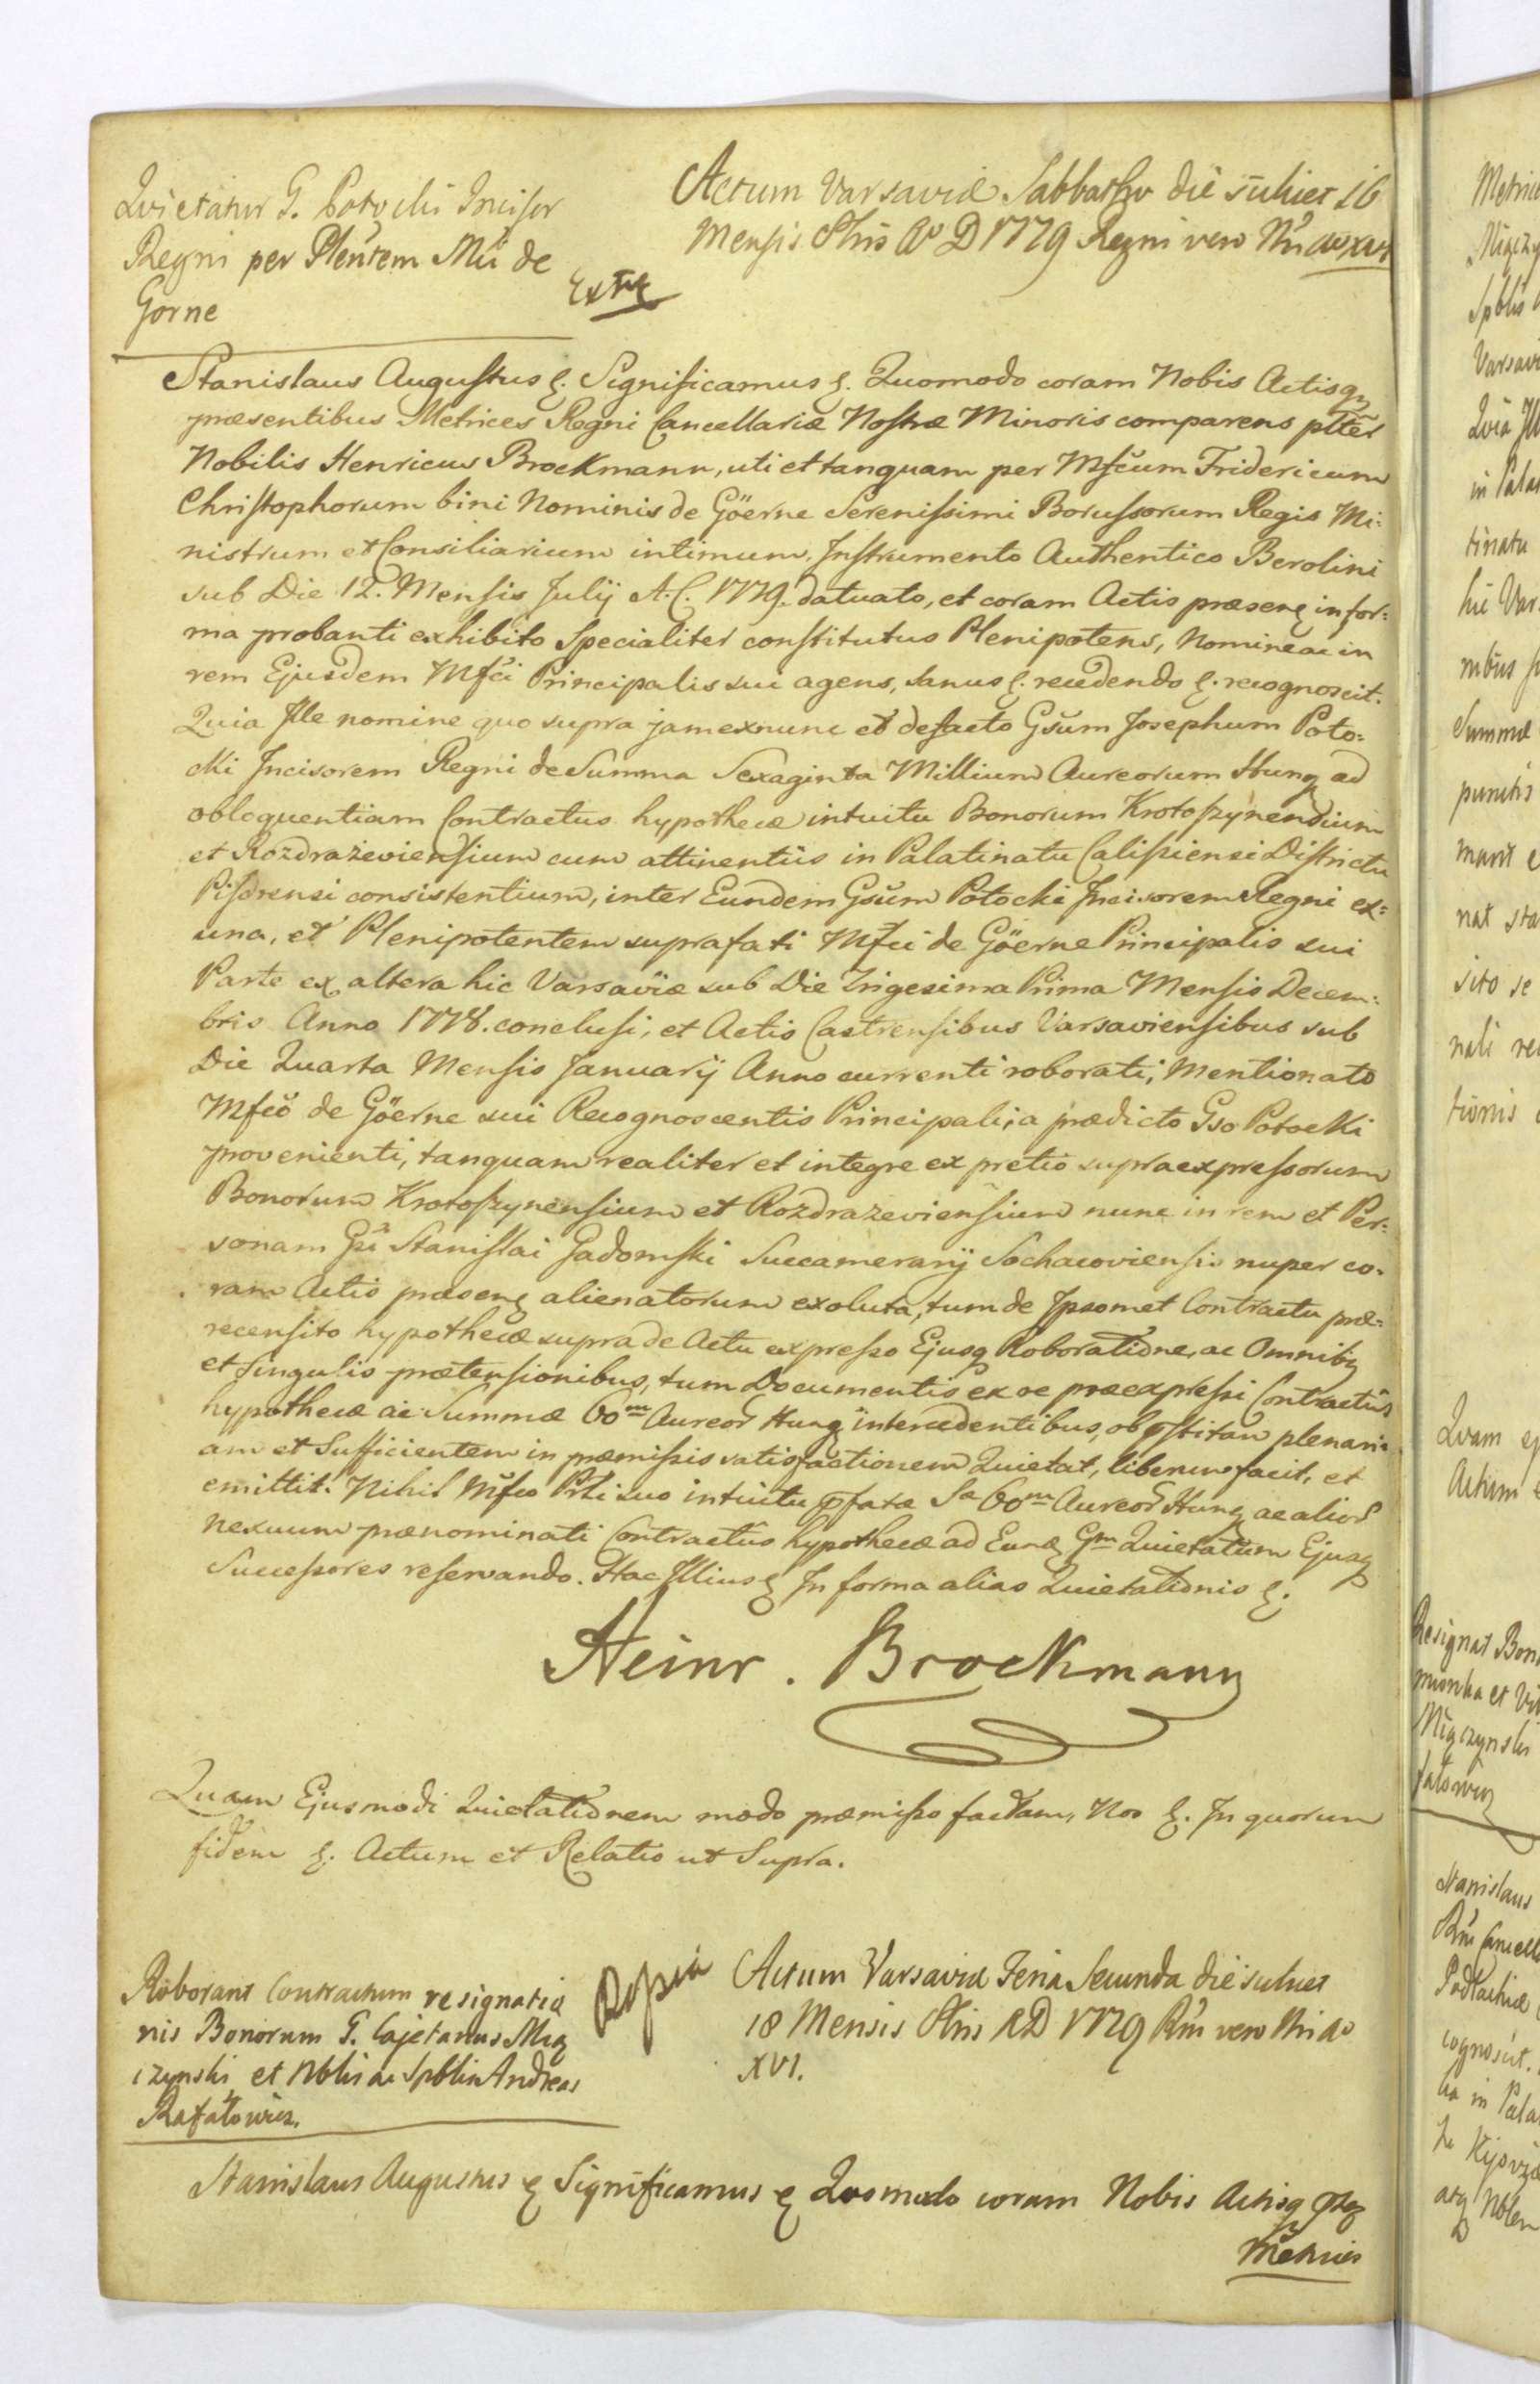 Quietatur G. Potocki Incisor
Regni per Plentem Mci de
Gorne
Extr
Actum Varsaviæ Sabbatho die scilicet 16
Mensis 8bris Ao D 1779 Regni vero Nri ao xvi
Stanislaus Augustus &. Significamus &. Quomodo coram Nobis Actisq
præsentibus Metrices Regni Cancellariæ Nostræ Minoris comparens plter
Nobilis Henricus Brockmann, uti et tanquam per Mfcum Fridericum
Christophorum bini Nominis de Göerne Serenissimi Borussorum Regis Mi:
nistrum et Consiliarium intimum, Instrumento Authentico Berolini
sub Die 12. Mensis Julij A. C. 1779. datuato, et coram Actis præsen in for:
ma probanti exhibito Specialiter constitutus Plenipotens, Nomine ac in
rem Ejusdem Mfci Principalis sui agens, sanus &. recedendo &. recognoscit.
Quia Ille nomine quo supra jam exnunc et defacto Gsum Josephum Poto:
cki Incisorem Regni de Summa Sexaginta Millium Aureorum Hung ad
obloquentiam Contractus hypothecæ intuitu Bonorum Krotoszynendium
et Rozdrażeviensium cum attinentiis in Palatinatu Calissiensi Districtu
Pisdrensi consistentium, inter Eundem Gsum Potocki Incisorem Regni ex:
una, et Plenipotentem suprafati Mfci de Göerne Principalis sui
Parte ex altera hic Varsaviæ sub Die Trigesima Prima Mensis Decem:
bris Anno 1778. conclusi, et Actis Castrensibus Varsaviensibus sub
Die Quarta Mensis Januarij Anno currenti roborati, Mentionato
Mfco de Göerne sui Recognoscentis Principali, a prædicto Gso Potocki
provenienti, tanquam realiter et integre ex pretio supraexpressorum
Bonorum Krotoszynensium et Rozdrazeviensium nunc in rem et Per:
sonam Gsi Stanislai Gadomski Succamerarij Sochacoviensis nuper co:
ram Actis præsen alienatorum exoluta, tum de Ipsomet Contractu præ:
recensito hypothecæ supra de Actu expresso Ejusq Roboratione, ac Omnibq
et Singulis prætensionibus, tum Documentis ex re præexpressi Contractûs
hypothecæ ac Summæ 60m Aureor Hung intercedentibus, ob pstitam plenari:
am et Sufficientem in præmissis satisfactionem Quietat, liberum facit, et
emittit. Nihil Mfco Pli suo intuitu pfatæ Sæ 60m Aureor Hung ac alior
nexuum prænominati Contractûs hypothecæ ad Eund Gm Quietatum Ejusq
Successores reservando. Hac Illius & In forma alias Quietationis &.
Heinr. Brockmann
Quam Ejusmodi Quietationem modo præmisso factam, Nos &. In quorum
fidem &. Actum et Relatio ut Supra.
Roborant Contractum resignatio
nis Bonorum G. Cajetanus Mią
czynski, et Nblis ac Spblis Andreas
Rafałowicz.
Actum Varsaviæ Feria Secunda die scilicet
18 Mensis 8bris A D 1779 Rni vero Nri Ao
XVI.
Stanislaus Augustus & Significamus & Quomodo coram Nobis Actisq
Metrices
Varsavi
in Pala
tinatu
hic Var
Summæ
nat sta
sito se
Quam ej
Actum
Resignat Bon
Miączynski
Stanislaus
cognoscit.